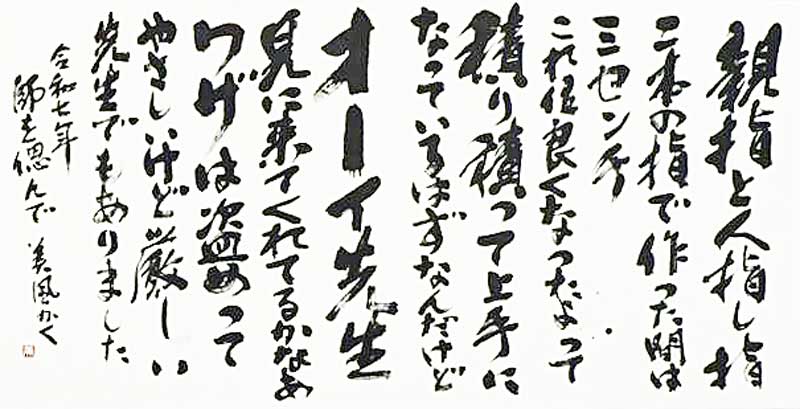 親指と人指し指
二本の指で作った間は
三センチ
これ位良くなったよって
積り積って上手に
なっているはずなんだけど
オーイ先生
見に来てくれてるかなあ
ワザは盗めって
やさしいけど厳しい
先生でもありました
令和七年
師を偲んで 美風かく